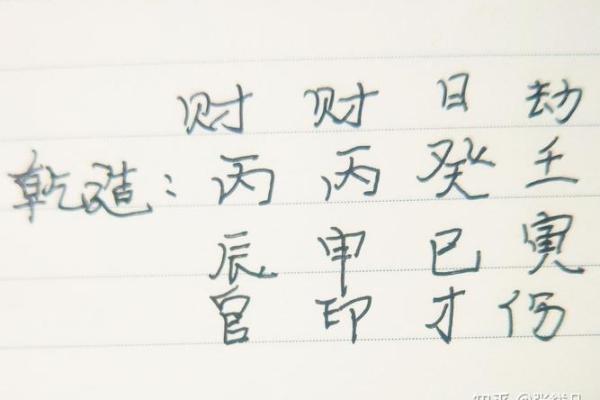 财 财 日 劫
乾造：丙 丙 癸 壬
辰 申 巳 寅
官 印 才 伤
知乎